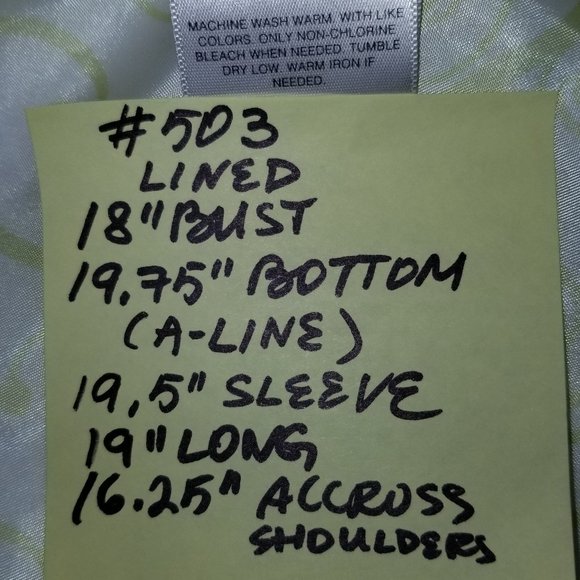 MACHINE WASH WARM, WITH LIKE
COLORS. ONLY NON-CHLORINE
BLEACH WHEN NEEDED. TUMBLE
DRY LOW. WARM IRON IF
NEEDED.
#503
LINED
18" BUST
19.75" BOTTOM
(A-LINE)
19.5" SLEEVE
19" LONG
16.25" ACCROSS
SHOULDERS